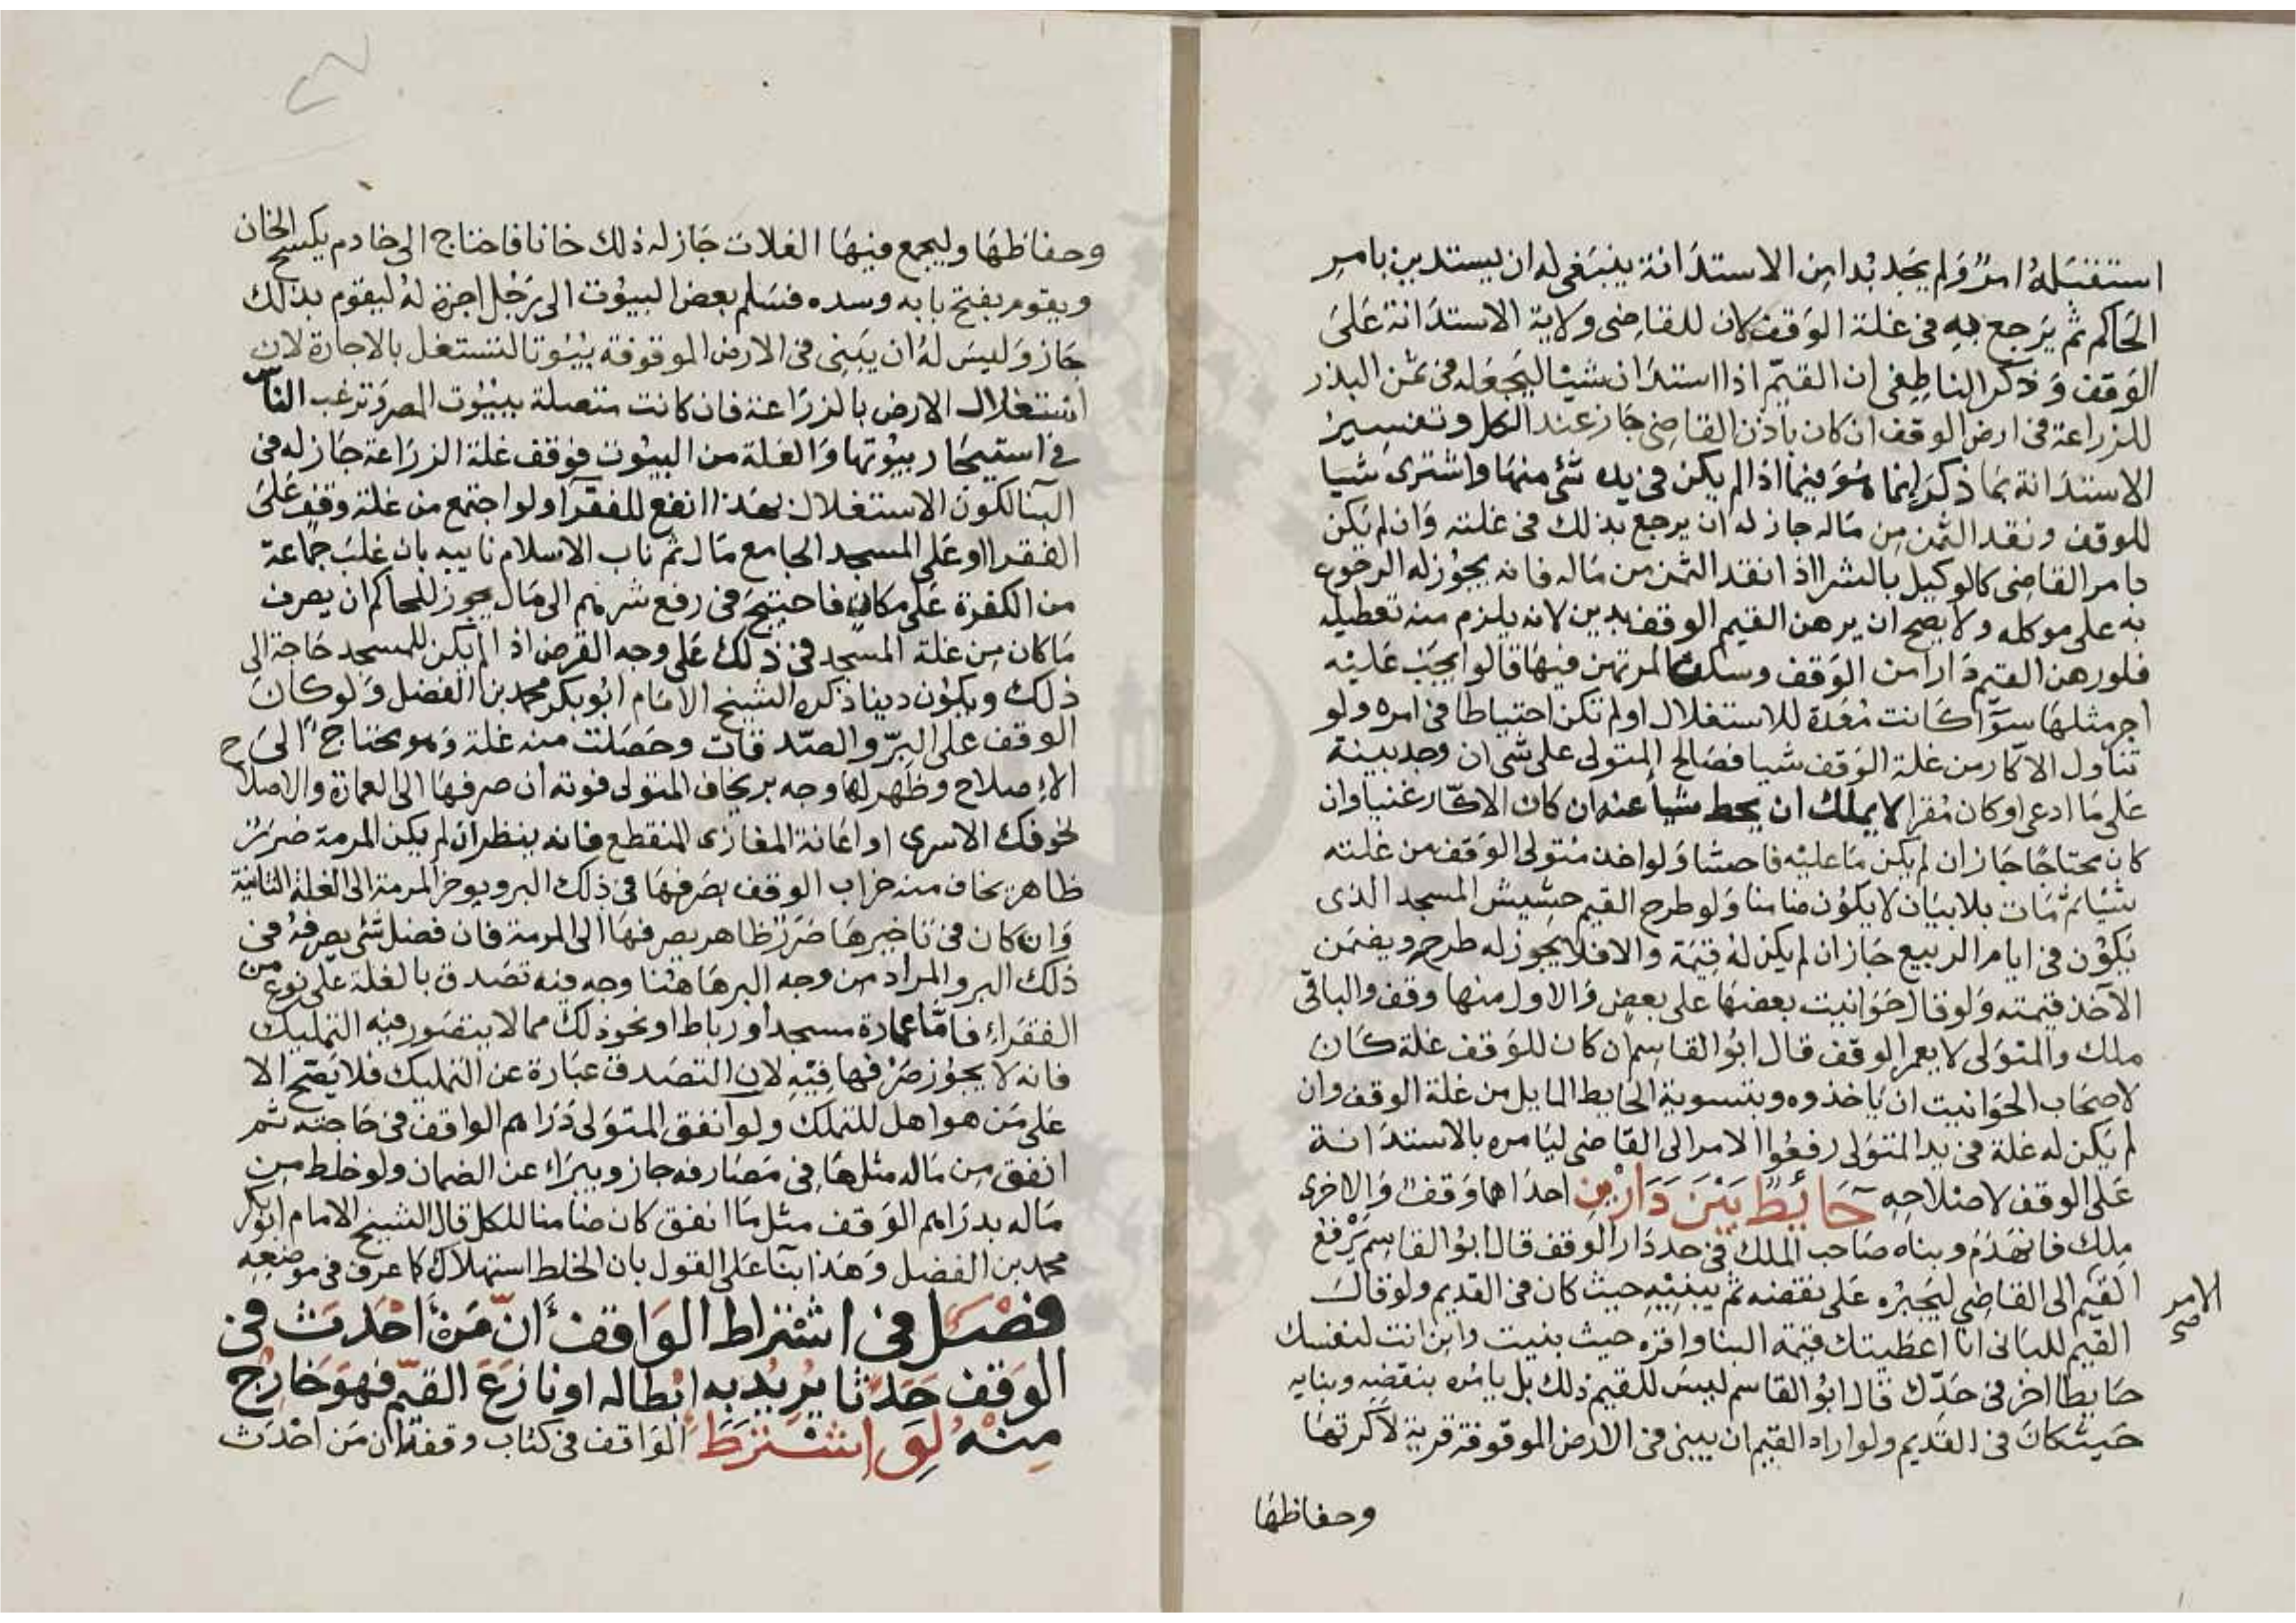 استقبله امر ولم يجد بدا من الاستدانة ينبغى له ان يستدين بامر
الحاكم ثم يرجع به فى غلة الوقف كان للقاضى ولاية الاستدانة على
الوقف وذكر الناطفى ان القيم اذا استدان شيئا ليجعله فى ثمن البذر
للزراعة فى ارض الوقف ان كان باذن القاضى جاز عند الكل وتفسير
الاستدانة بما ذكر انما هو فيما اذا لم يكن فى يده شئ منها واشترى شيا
للوقف ونقد الثمن من ماله جاز له ان يرجع بذلك فى غلته وان لم يكن
بامر القاضى كالوكيل بالشرا اذا نقد الثمن من ماله فانه يجوز له الرجوع
به على موكله ولا يصح ان يرهن القيم الوقف بدين لانه يلزم منه تعطيله
فلو رهن القيم دارا من الوقف وسكن المرتهن فيها قالوا يجب عليه
اجر مثلها سوآ كانت معدة للاستغلال او لم تكن احتياطا فى امره ولو
تناول الاكار من غلة الوقف شيا فصالح المتولى على شى ان وجد بينة
على ما ادعى او كان مقرا لا يملك ان يحط شيأ عنه ان كان الاكار غنيا وان
كان محتاجا جاز ان لم يكن ما عليه فاحشا ولو اخذ متولى الوقف من غلته
شيا ثم مات بلا بيان لا يكون ضامنا ولو طرح القيم حشيش المسجد الذى
يكون فى ايام الربيع جاز ان لم يكن له قيمة والا فلا يجوز له طرحه ويضمن
الآخذ قيمته ولو قال حوانيت بعضها على بعض والاول منها وقف والباقى
ملك والمتولى لا يعمر الوقف قال ابو القاسم ان كان للوقف غلة كان
لاصحاب الحوانيت ان ياخذوه وبتسوية الحايط المايل من غلة الوقف وان
لم يكن له غلة فى يد المتولى رفعوا الامر الى القاضى ليامره بالاستدانة
على الوقف لاصلاحه حائط بين دارين احداهما وقف والاخرى
ملك فانهدم وبناه صاحب الملك فى حد دار الوقف قال ابو القاسم يرفع
القيم الى القاضى ليجبره على نقضه ثم يبنيه حيث كان فى القديم ولو قال
الامر صح
القيم للبانى انا اعطيتك قيمة البنا واقره حيث بنيت وابن انت لنفسك
حايطا اخر فى حدك قال ابو القاسم ليس للقيم ذلك بل يامره بنقضه وبنايه
حيث كان فى القديم ولو اراد القيم ان يبنى فى الارض الموقوفة قرية لاكرتها
وحفاظها
وحفاظها وليجمع فيها الغلات جاز له ذلك خانا فاحتاج الى خادم يكسح الخان
ويقوم بفتح بابه وسده فسلم بعض البيوت الى رجل اجرة له ليقوم بذلك
جاز وليس له ان يبنى فى الارض الموقوفة بيوتا لتستغل بالاجارة لان
استغلال الارض بالزراعة فان كانت متصلة ببيوت المصر وترغب الناس
فى استيجار بيوتها والغلة من البيوت فوقف غلة الزراعة جاز له فى
البنا لكون الاستغلال بهذا انفع للفقرآ ولو اجتمع من غلة وقف على
الفقرا او على المسجد الجامع مال ثم ناب الاسلام نايبه بان غلب جماعة
من الكفرة على مكان فاحتيج فى رفع شرهم الى مال يجوز للحاكم ان يصرف
ما كان من غلة المسجد فى ذلك على وجه القرض اذ لم يكن للمسجد حاجة الى
ذلك ويكون دينا ذكره الشيخ الامام ابو بكر محمد بن الفضل ولو كان
الوقف على البر والصدقات وحصلت منه غلة وهو محتاج الى
الاصلاح وظهر لها وجه بر يخاف المتولى فوته ان صرفها الى العمارة والاصلاح
نحو فك الاسرى او اعانة المغازى المنقطع فانه ينظر ان لم يكن المرمة ضرر
ظاهر يخاف منه خراب الوقف يصرفها فى ذلك البر ويوخر المرمة الى الغلة الثانية
وان كان فى تاخيرها ضرر ظاهر يصرفها الى المرمة فان فضل شئ يصرفه فى
ذلك البر والمراد من وجه البر هاهنا وجه فيه تصدق بالغلة على نوع من
الفقراء فاما عمارة مسجد او رباط او نحو ذلك مما لا يتصور فيه التمليك
فانه لا يجوز صرفها فيه لان التصدق عبارة عن التمليك فلا يصح الا
على من هو اهل للتملك ولو انفق المتولى دراهم الواقف فى حاجته ثم
انفق من ماله مثلها فى مصارفه جاز ويبراء عن الضمان ولو خلط من
ماله بدراهم الوقف مثل ما انفق كان ضامنا للكل قال الشيخ الامام ابو بكر
محمد بن الفضل وهذا بنآ على القول بان الخلط استهلاك كا عرف فى موضعه
فصل فى اشتراط الواقف أن من أحدث فى
الوقف حدثا يريد به ابطاله او نازع القيم فهو خارج
منه لو اشترط الواقف فى كتاب وقفه ان من احدث